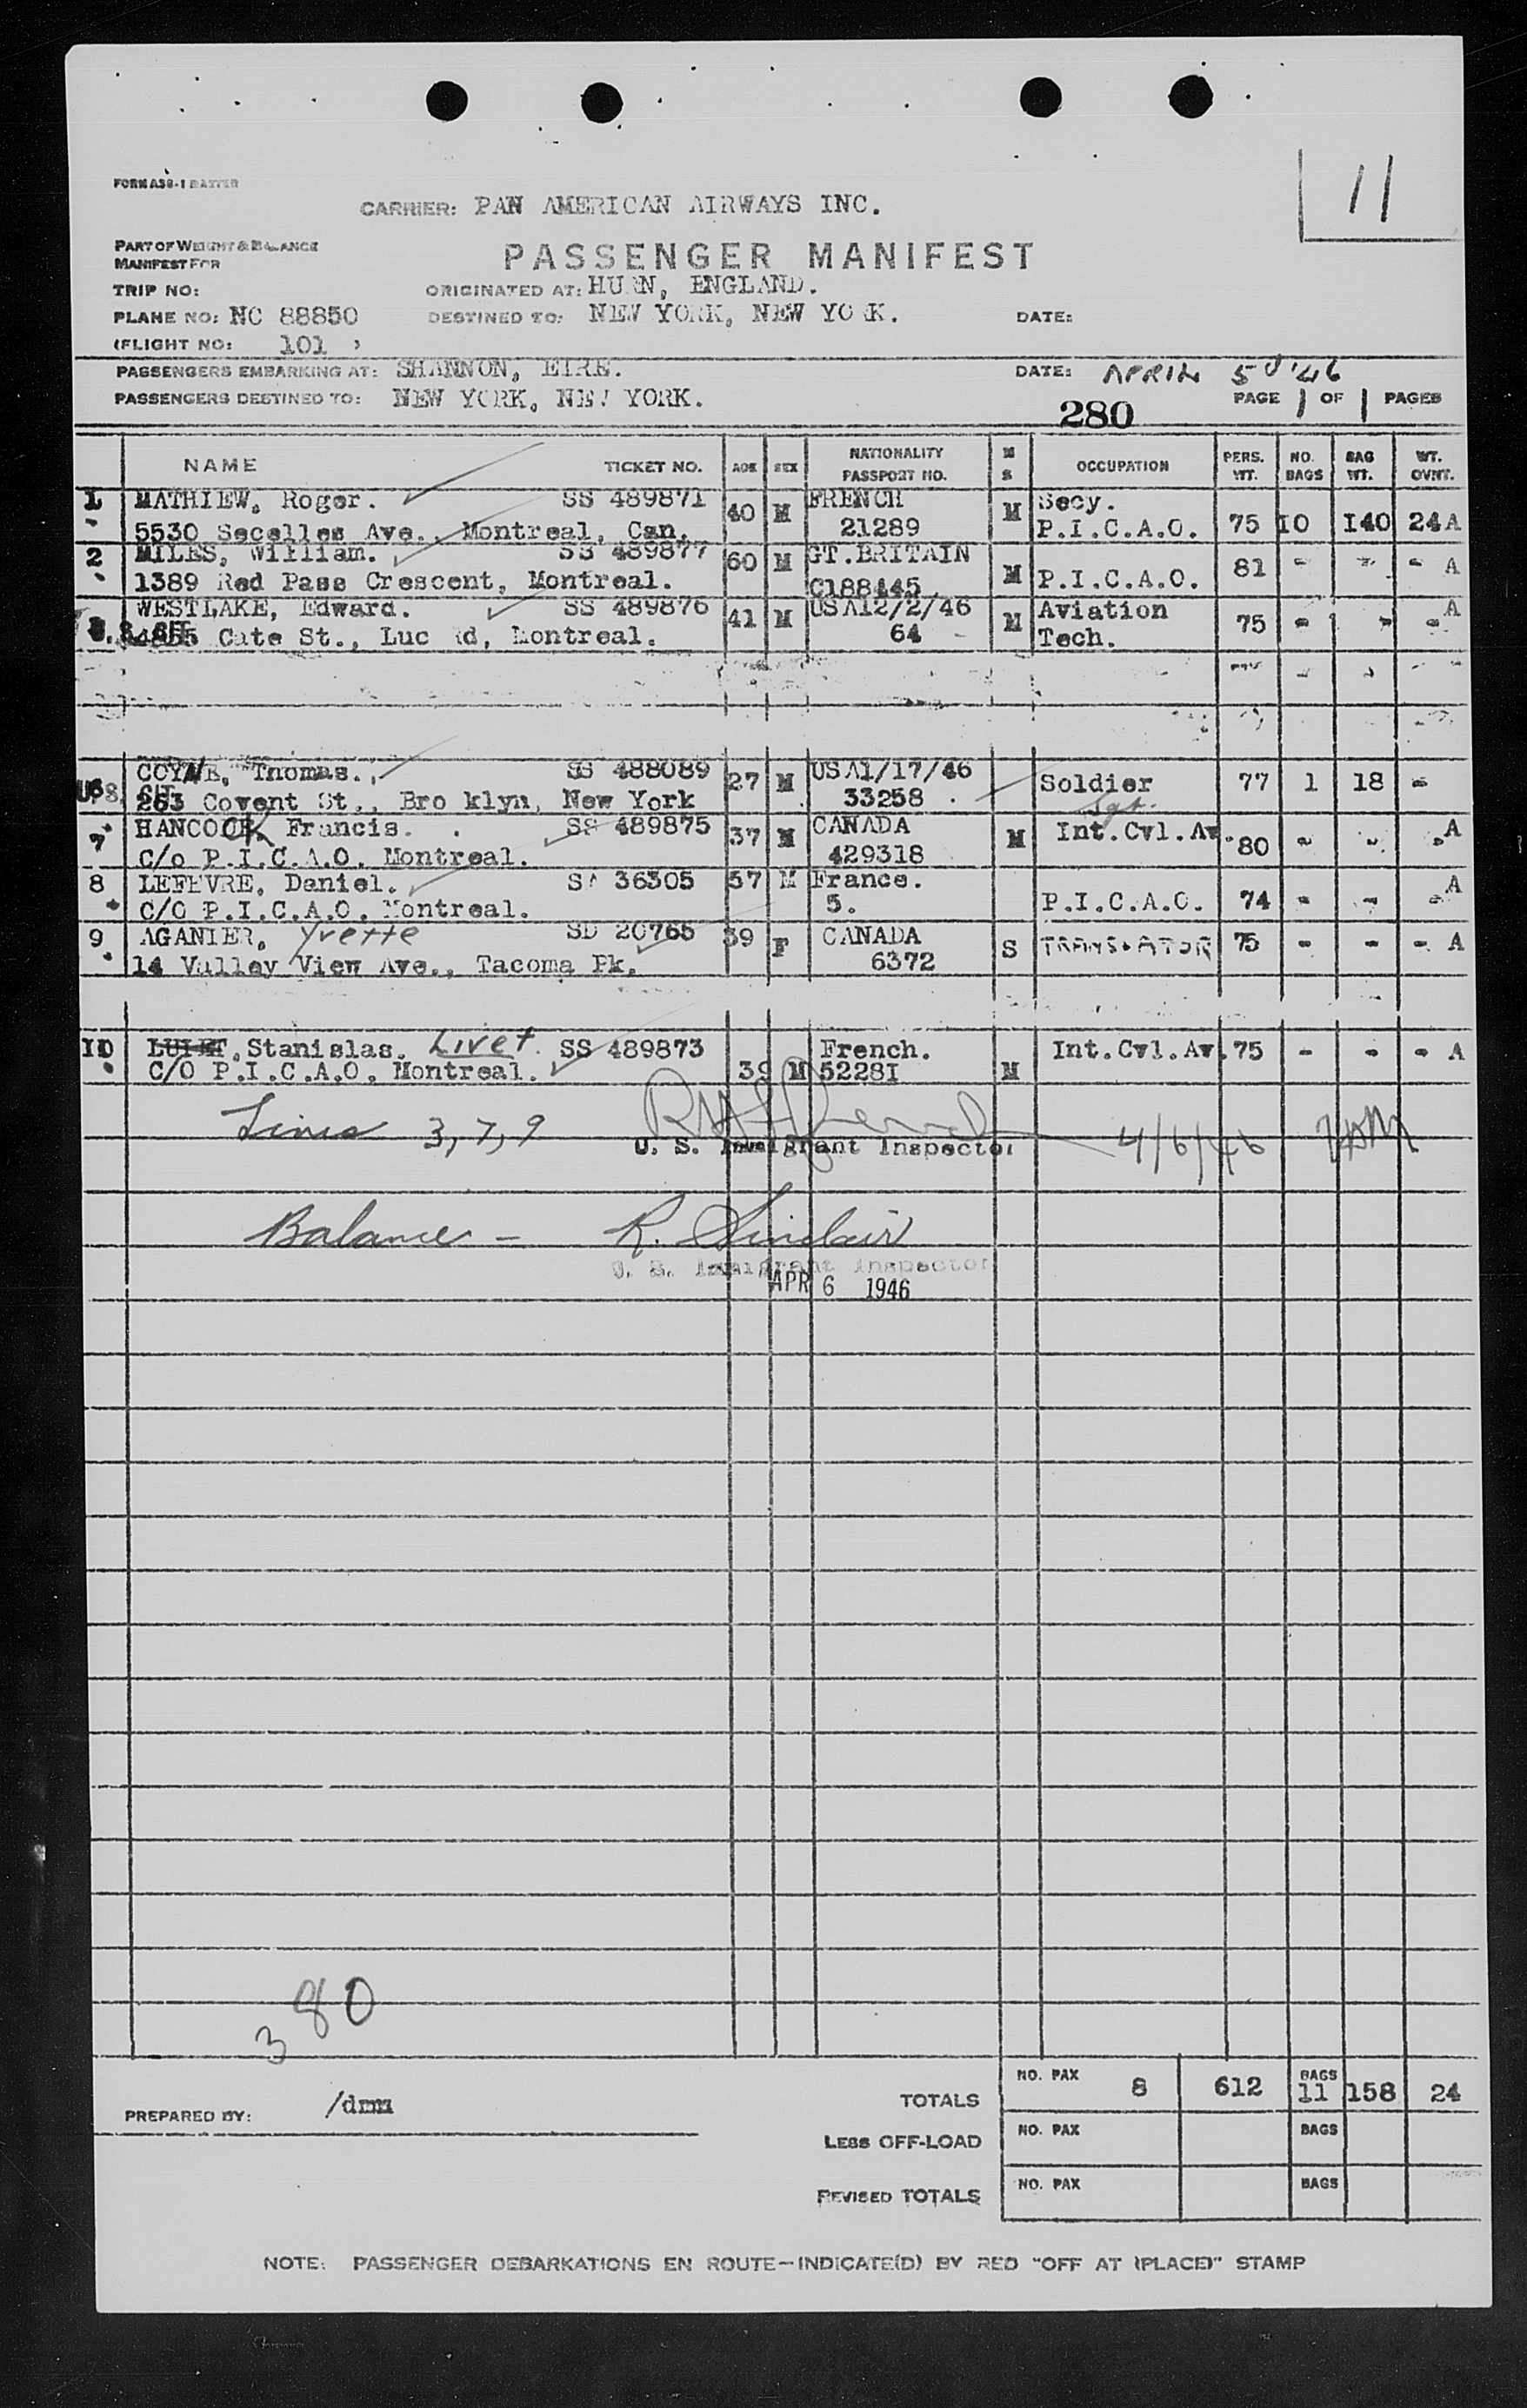 11
FORM A38-1 BAXTER
CARRIER: PAN AMERICAN AIRWAYS INC.
PART OF WEIGHT & BALANCE
MANIFEST FOR
PASSENGER MANIFEST
TRIP NO: ORIGINATED AT: HURN, ENGLAND.
PLANE NO: NC 88850 DESTINED TO: NEW YORK, NEW YORK. DATE:
(FLIGHT NO: 101 )
PASSENGERS EMBARKING AT: SHANNON, EIRE. DATE: APRIL 5 '46
PASSENGERS DESTINED TO: NEW YORK, NEW YORK. 280 PAGE 1 OF 1 PAGES
NAME TICKET NO. AGE SEX NATIONALITY PASSPORT NO. M S OCCUPATION PERS. WT. NO. BAGS BAG WT. WT. OVNT.
1 MATHIEW, Roger. SS 489871 40 M FRENCH M Secy.
5530 Secelles Ave., Montreal, Can. 21289 P.I.C.A.O. 75 10 140 24 A
2 MILES, William. SS 489877 60 M GT.BRITAIN M 81 - - - A
1389 Red Pass Crescent, Montreal. C188445. P.I.C.A.O.
WESTLAKE, Edward. SS 489876 41 M USA12/2/46 M Aviation 75 - - - A
Cate St., Luc Rd, Montreal. 64 - Tech.
COYNE, Thomas. SS 488089 27 M USA1/17/46 Soldier 77 1 18 -
263 Covent St., Bro klyn, New York 33258 . Sgt.
7 HANCOCK, Francis. SS 489875 37 M CANADA M Int.Cvl.Av. 80 - - - A
C/o P.I.C.A.O. Montreal. 429318
8 LEFEVRE, Daniel. SA 36305 57 M France. - A
C/O P.I.C.A.O. Montreal. 5. P.I.C.A.O. 74 - -
9 AGANIER, Yvette SD 20765 39 F CANADA S TRANSLATOR 75 - - - A
14 Valley View Ave., Tacoma Pk. 6372
10 Stanislas. Livet. SS 489873 French. Int.Cvl.Av. 75 - - - A
C/O P.I.C.A.O. Montreal. 39 M 5228I M
Lines 3, 7, 9
U. S. Immigrant Inspector 4/6/46
Balance - R. Sinclair
U. S. Immigrant Inspector
APR 6 1946
380
TOTALS NO. PAX 8 612 BAGS 11 158 24
PREPARED BY: /dmm
LESS OFF-LOAD NO. PAX BAGS
REVISED TOTALS NO. PAX BAGS
NOTE: PASSENGER DEBARKATIONS EN ROUTE—INDICATE(D) BY RED "OFF AT (PLACE)" STAMP